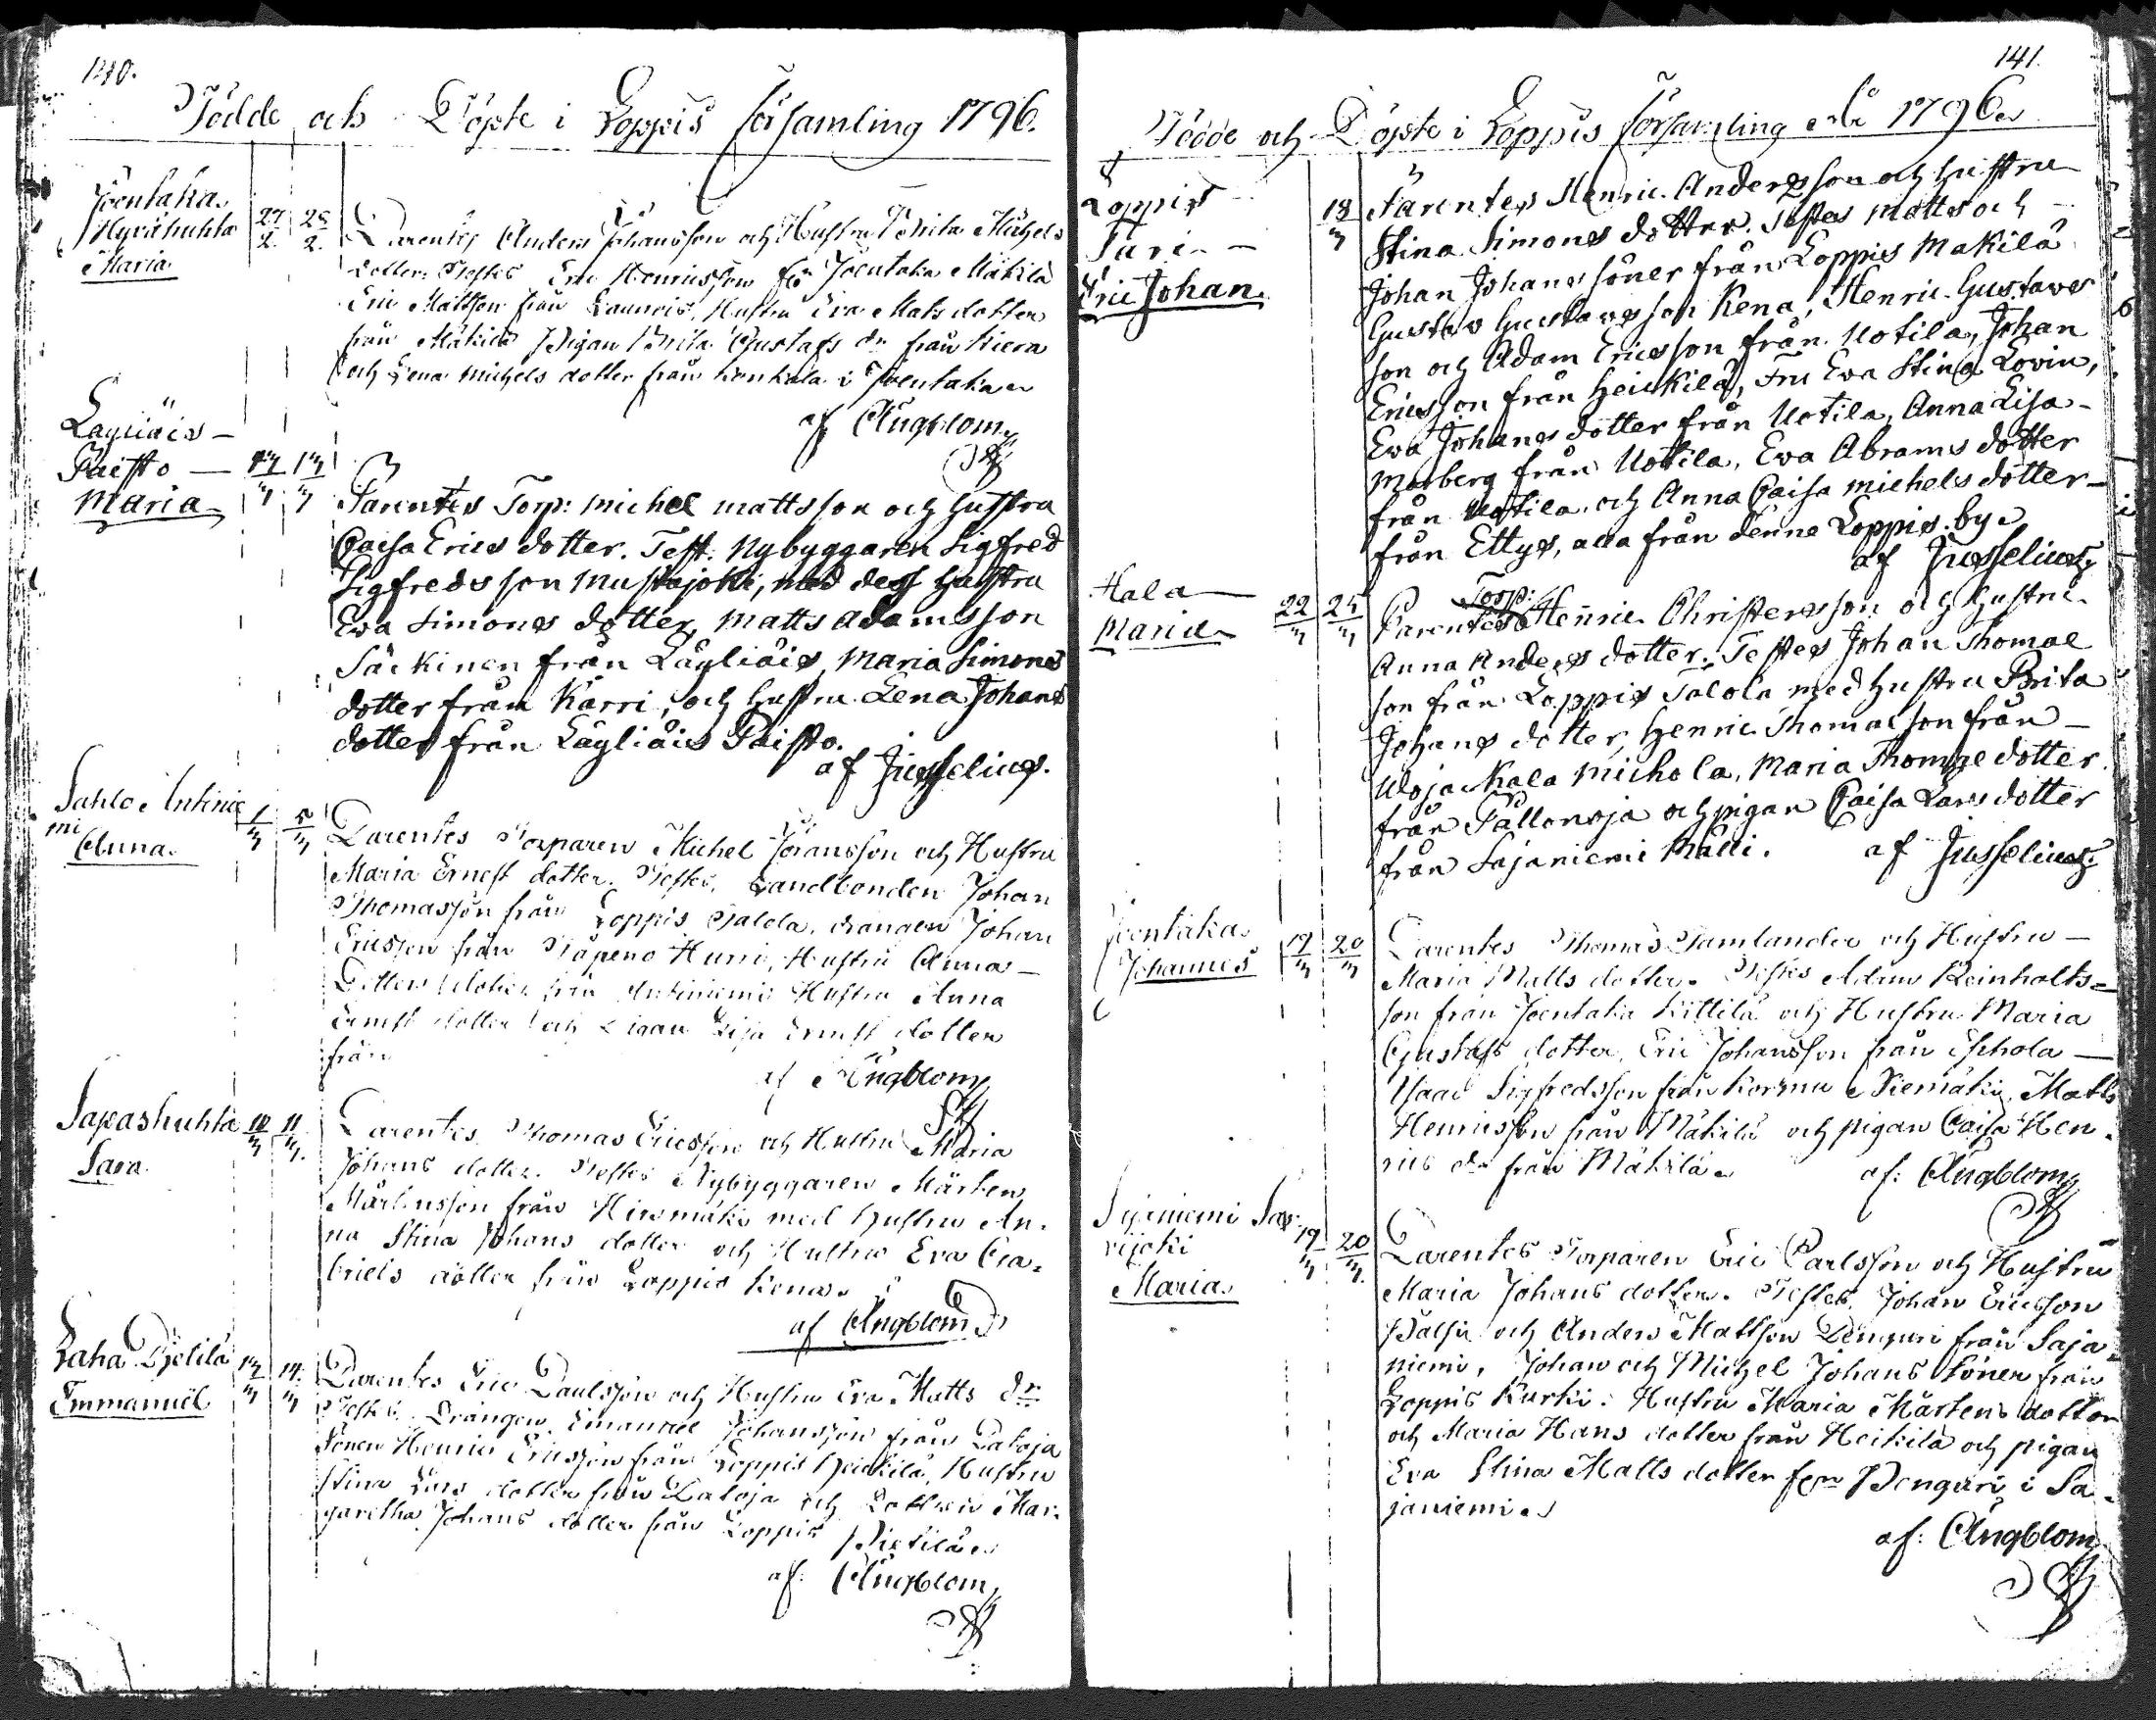 140.
Födde och Döpte i Loppis församling 1796.
Joentaka
Hyvähuhta
Maria
27/2 28/2
Parentes Anders Johansson och Hustru Brita Michels
dotter. Testes Eric Henricsson fr Joentaka Mäkilä
Eric Mattsson från Hustru Eva Mats dotter
från Mäkilä Pigan Brita Gustafs dr från
och Lena Michels dotter från i Joentaka
af Ångblom
Lägliäis
Paisto
Maria
Parentes Torp: Michel Mattsson och hustru
Caisa Erics dotter. Test. Nybyggaren Sigfred
Sigfredsson Mustajoki, med dess hustru
Eva Simons dotter, Matts Adamsson
Säckinen från Lägliäis, Maria Simons
dotter från Karri, och hustru Lena Johans
dotter från Lägliäis Paisto.
af Jusselius.
Sahlo Antinie
mi
Anna.
Parentes Torparen Michel Göransson och Hustru
Maria Ernest dotter. Testes. Landbonden Johan
Thomasson från Loppis Talola, drängen Johan
Ericsson från Topeno Hurri, Hustru Anna
från Antiniemi Hustru Anna
Ernst dotter och Pigan Lisa Ernst dotter
från
af Ångblom
Sapashuhta
Sara
10 11
Parentes. Thomas Ericsson och Hustru Maria
Johans dotter. Testes Nybyggaren Mårten
Mårtensson från Hirsimäki med hustru An-
na Stina Johans dotter och Hustru Eva Ga-
briels dotter från Loppis Kena.
af Ångblom
Laha Pjetilä
Emmanuel
Parentes Eric Paulsson och Hustru Eva Matts dr
Testes. Drängen Emanuel Johansson från Pataja
Sonen Henric Ericsson från Loppis Heickilä, Hustru
Stina Lars dotter från Pataja och Dottren Mar-
garetha Johans dotter från Loppis Pietilä
af: Ångblom
141.
Födde och Döpte i Loppis församling 1796
Loppis
Eric Johan.
18
Parentes Henric Andersson och hustru
Stina Simons dotter. Testes Matts och
Johan Johans söner från Loppis Mäkilä
Gustav Gustavsson Kena, Henric Gustavs
son och Adam Ericsson från Uotila, Johan
Ericsson från Heickilä, Fru Eva Stina Lovin,
Eva Johans dotter från Uotila, Anna Lisa
Morberg från Uotila, Eva Abrams dotter
från Uotila och Anna Caisa Michels dotter
från Ettys, alla från denne Loppis by.
af Jusselius
Hala
Maria
22
Torp:
Parentes Henric Christersson och hustru
Anna Anders dotter. Testes Johan Thomae
son från Loppis Talola med hustru Brita
Johans dotter, Henric Thomasson från
Woja Kala Michola, Maria Thomae dotter
från Pällonoja och pigan Caisa Lars dotter
från Sajaniemi Mälli. af Jusselius
Joentaka
Johannes
19 20
Parentes Thomas Tamlander och Hustru
Maria Matts dotter. Testes Adam Reinholts-
son från Joentaka Kittilä och Hustru Maria
Gustafs dotter, Eric Johansson från Eskola
Isaac Sigfredsson från Kormu Niemäki, Matts
Henricsson från Mäkilä och pigan Caisa Hen-
rics dr från Mäkilä
af: Ångblom
Sajaniemi Sav-
rijoki
Maria.
19 20
Parentes Torparen Eric Carlsson och Hustru
Maria Johans dotter. Testes. Johan Ericsson
och Anders Mattsson Penguri från Saja-
niemi, Johan och Michel Johans Söner från
Loppis Kurki. Hustru Maria Mårtens dotter
och Maria Hans dotter från Heikilä och pigan
Eva Stina Matts dotter från Penguri i Sa-
janiemi
af: Ångblom